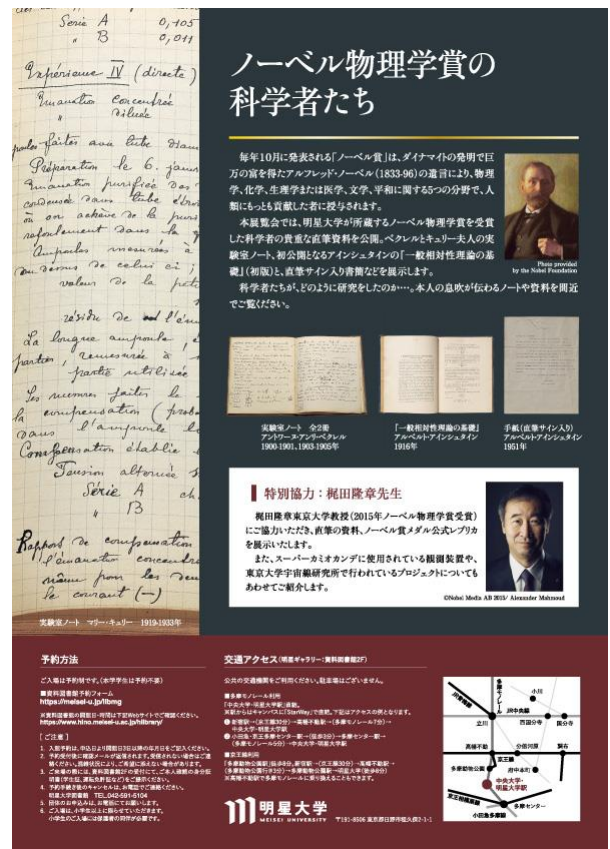 Série A 0,105
" B 0,011
Expérience IV (directe)
Emanation concentrée
" diluée
Préparation le 6. janv
Emanation purifiée
condensée dans tube étroi
valeur de la
La longue ampoule
partie utilisée
Les mesures faites
la compensation (prob
dans l'ampoule
Compensation établie
Tension alternée
Série A ch
" B
Rapport de compensation
l'émanation concentrée
même pour les deux
le courant (—)
実験室ノート マリー・キュリー 1919-1933年
ノーベル物理学賞の
科学者たち
毎年10月に発表される「ノーベル賞」は、ダイナマイトの発明で巨
万の富を得たアルフレッド・ノーベル(1833-96)の遺言により、物理
学、化学、生理学または医学、文学、平和に関する5つの分野で、人
類にもっとも貢献した者に授与されます。
本展覧会では、明星大学が所蔵するノーベル物理学賞を受賞
した科学者の貴重な直筆資料を公開。ベクレルとキュリー夫人の実
験ノート、初公開となるアインシュタインの「一般相対性理論の基
礎」(初版)と、直筆サイン入り書簡などを展示します。
科学者たちが、どのように研究をしたのか…。本人の息吹が伝わるノートや資料を間近
でご覧ください。
Photo provided
by the Nobel Foundation
実験室ノート 全2冊
アントワーヌ・アンリ・ベクレル
1900-1901、1903-1905年
「一般相対性理論の基礎」
アルベルト・アインシュタイン
1916年
手紙(直筆サイン入り)
アルベルト・アインシュタイン
1951年
特別協力:梶田隆章先生
梶田隆章東京大学教授(2015年ノーベル物理学賞受賞)
にご協力いただき、直筆の資料、ノーベル賞メダル公式レプリカ
を展示いたします。
また、スーパーカミオカンデに使用されている観測装置や、
東京大学宇宙線研究所で行われているプロジェクトについても
あわせてご紹介します。
©Nobel Media AB 2015/ Alexander Mahmoud
予約方法
ご入場は予約制です。(本学学生は予約不要)
■資料図書館予約フォーム
https://meisei-u.jp/libmg
※資料図書館の開館日・時間は下記Webサイトでご確認ください。
https://www.hino.meisei-u.ac.jp/library/
[ご注意]
1. 入館予約は、申込日より開館日3日以降の年月日をご記入ください。
2. 予約受付後に確認メールが返送されます。受信されない場合はご連
3. ご来場の際には、資料図書館2Fの受付にて、ご本人確認の身分証
明書(学生証、運転免許証など)をご提示ください。
4. 予約手続き後のキャンセルは、お電話でご連絡ください。
明星大学図書館 TEL.042-591-5104
5. 団体のお申込みは、お電話にてお願いします。
6. ご入場は、小学生以上に限らせていただきます。
小学生のご入場には保護者の同伴が必要です。
交通アクセス(明星ギャラリー:資料図書館2F)
公共の交通機関をご利用ください。駐車場はございません。
■多摩モノレール利用
「中央大学・明星大学駅」直結。
※駅からはキャンパスに「StarWay」で直結。下記はアクセスの例となります。
❶新宿駅→(京王線30分)→高幡不動駅→(多摩モノレール7分)→
中央大学・明星大学駅
■京王線利用
※高幡不動駅で多摩モノレールに乗り換えることもできます。
明星大学
MEISEI UNIVERSITY
〒191-8506 東京都日野市程久保2-1-1
多摩モノレール
小川
JR中央線
立川
西国分寺
国分寺
高幡不動
分倍河原
調布
京王線
多摩動物公園
府中本町
中央大学・
明星大学駅
京王相模原線
多摩センター
小田急多摩線